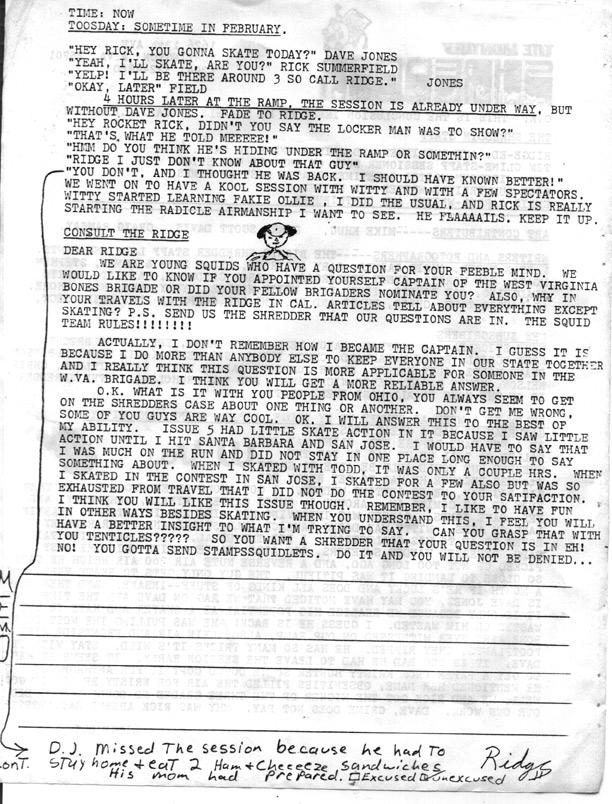 TIME: NOW
TOOSDAY: SOMETIME IN FEBRUARY.
"HEY RICK, YOU GONNA SKATE TODAY?" DAVE JONES
"YEAH, I'LL SKATE, ARE YOU?" RICK SUMMERFIELD
"YELP! I'LL BE THERE AROUND 3 SO CALL RIDGE." JONES
"OKAY, LATER" FIELD
4 HOURS LATER AT THE RAMP, THE SESSION IS ALREADY UNDER WAY, BUT
WITHOUT DAVE JONES. FADE TO RIDGE.
"HEY ROCKET RICK, DIDN'T YOU SAY THE LOCKER MAN WAS TO SHOW?"
"THAT'S WHAT HE TOLD MEEEEE!"
"HMM DO YOU THINK HE'S HIDING UNDER THE RAMP OR SOMETHIN?"
"RIDGE I JUST DON'T KNOW ABOUT THAT GUY"
"YOU DON'T, AND I THOUGHT HE WAS BACK. I SHOULD HAVE KNOWN BETTER!"
WE WENT ON TO HAVE A KOOL SESSION WITH WITTY AND WITH A FEW SPECTATORS.
WITTY STARTED LEARNING FAKIE OLLIE , I DID THE USUAL, AND RICK IS REALLY
STARTING THE RADICLE AIRMANSHIP I WANT TO SEE. HE FLAAAAILS. KEEP IT UP.
CONSULT THE RIDGE
DEAR RIDGE
WE ARE YOUNG SQUIDS WHO HAVE A QUESTION FOR YOUR FEEBLE MIND. WE
WOULD LIKE TO KNOW IF YOU APPOINTED YOURSELF CAPTAIN OF THE WEST VIRGINIA
BONES BRIGADE OR DID YOUR FELLOW BRIGADERS NOMINATE YOU? ALSO, WHY IN
YOUR TRAVELS WITH THE RIDGE IN CAL. ARTICLES TELL ABOUT EVERYTHING EXCEPT
SKATING? P.S. SEND US THE SHREDDER THAT OUR QUESTIONS ARE IN. THE SQUID
TEAM RULES!!!!!!!!!
ACTUALLY, I DON'T REMEMBER HOW I BECAME THE CAPTAIN. I GUESS IT IS
BECAUSE I DO MORE THAN ANYBODY ELSE TO KEEP EVERYONE IN OUR STATE TOGETHER
AND I REALLY THINK THIS QUESTION IS MORE APPLICABLE FOR SOMEONE IN THE
W.VA. BRIGADE. I THINK YOU WILL GET A MORE RELIABLE ANSWER.
O.K. WHAT IS IT WITH YOU PEOPLE FROM OHIO, YOU ALWAYS SEEM TO GET
ON THE SHREDDERS CASE ABOUT ONE THING OR ANOTHER. DON'T GET ME WRONG,
SOME OF YOU GUYS ARE WAY COOL. OK. I WILL ANSWER THIS TO THE BEST OF
MY ABILITY. ISSUE 5 HAD LITTLE SKATE ACTION IN IT BECAUSE I SAW LITTLE
ACTION UNTIL I HIT SANTA BARBARA AND SAN JOSE. I WOULD HAVE TO SAY THAT
I WAS MUCH ON THE RUN AND DID NOT STAY IN ONE PLACE LONG ENOUGH TO SAY
SOMETHING ABOUT. WHEN I SKATED WITH TODD, IT WAS ONLY A COUPLE HRS. WHEN
I SKATED IN THE CONTEST IN SAN JOSE, I SKATED FOR A FEW ALSO BUT WAS SO
EXHAUSTED FROM TRAVEL THAT I DID NOT DO THE CONTEST TO YOUR SATIFACTION.
I THINK YOU WILL LIKE THIS ISSUE THOUGH. REMEMBER, I LIKE TO HAVE FUN
IN OTHER WAYS BESIDES SKATING. WHEN YOU UNDERSTAND THIS, I FEEL YOU WILL
HAVE A BETTER INSIGHT TO WHAT I'M TRYING TO SAY. CAN YOU GRASP THAT WITH
YOU TENTICLES????? SO YOU WANT A SHREDDER THAT YOUR QUESTION IS IN EH!
NO! YOU GOTTA SEND STAMPSSQUIDLETS. DO IT AND YOU WILL NOT BE DENIED...
D.J. Missed The session because he had To
stay home + eat 2 Ham + Cheeeeze sandwiches
His mom had prepared. Excused unexcused
Ridge